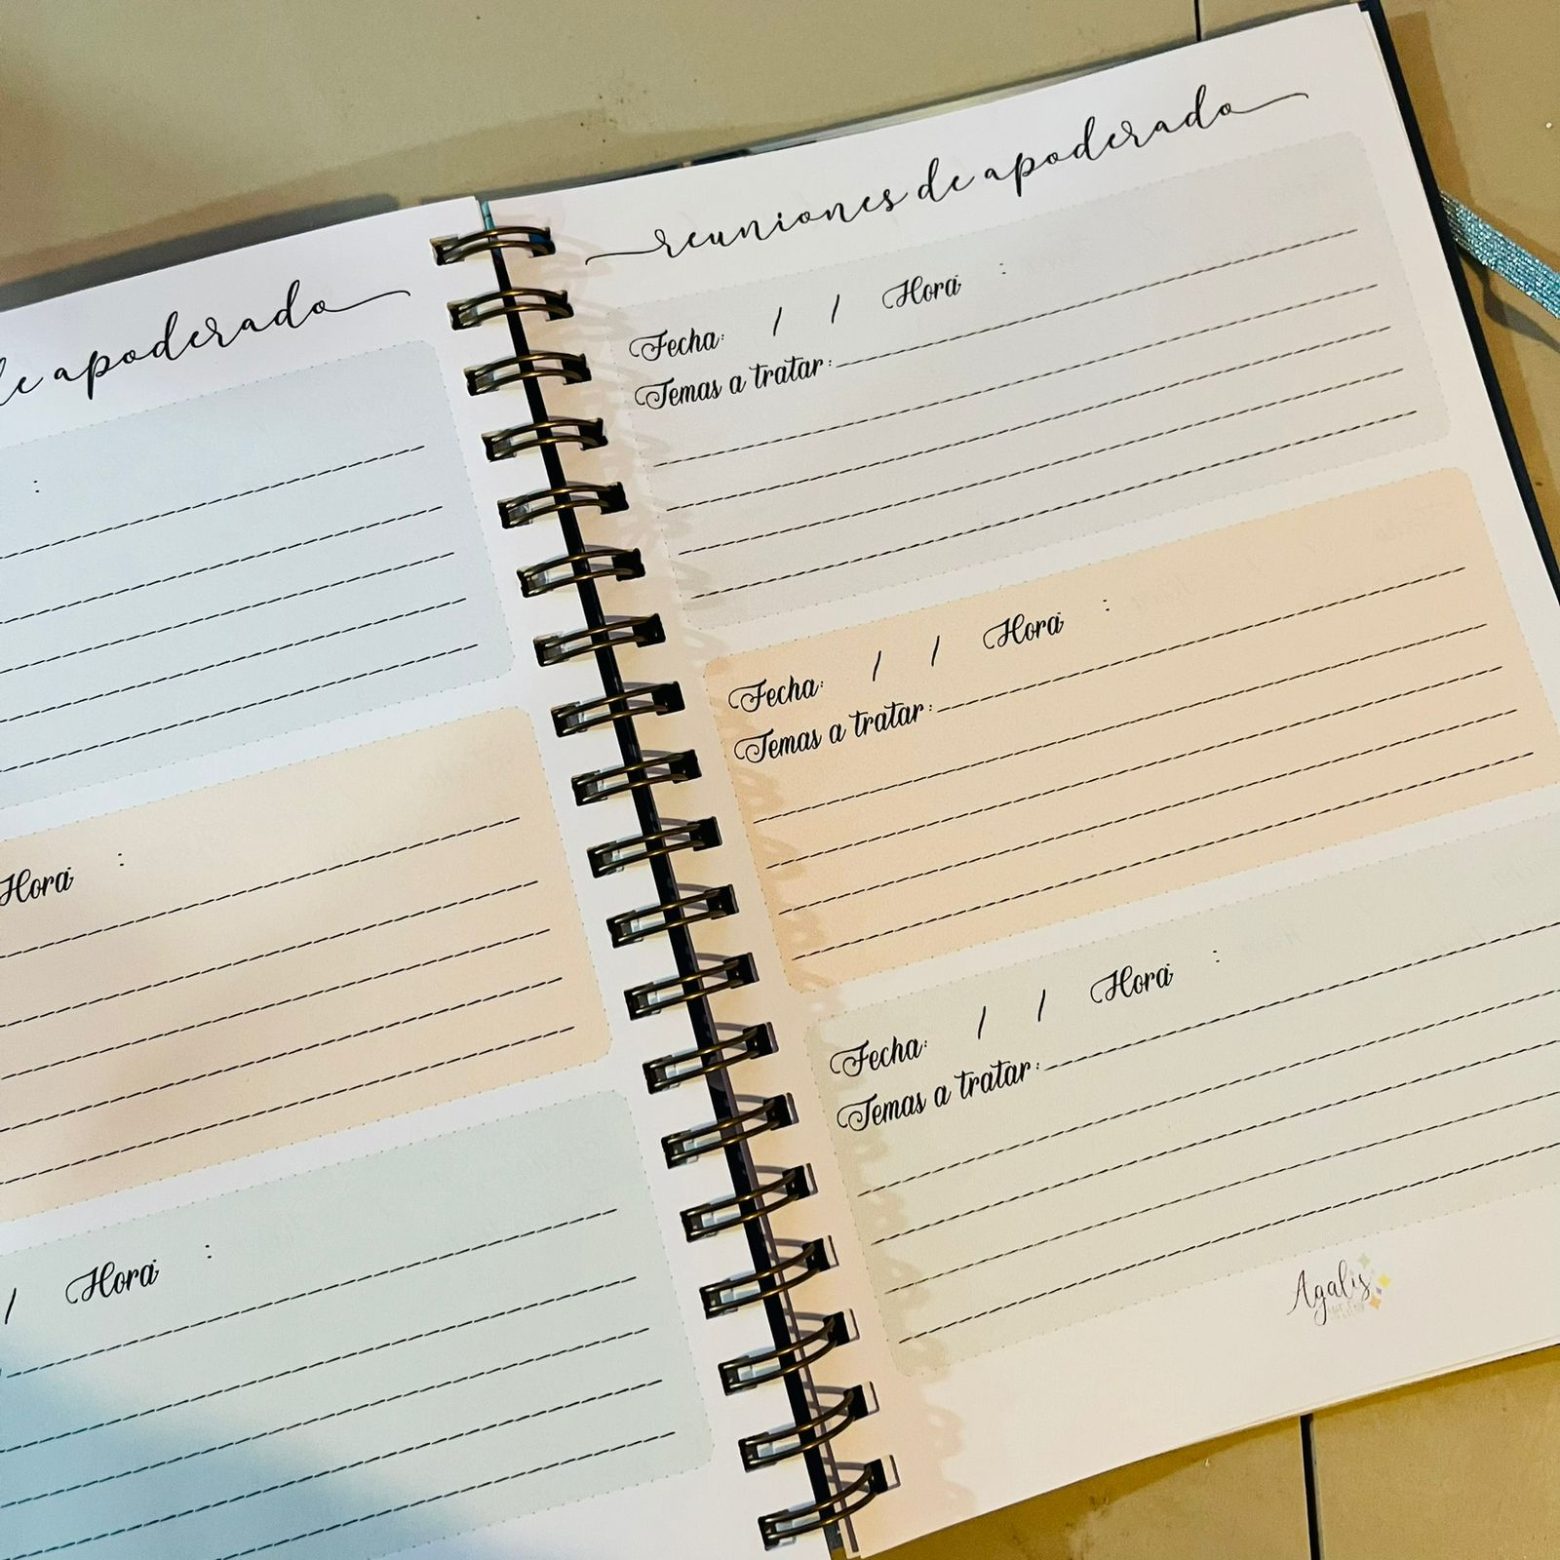 de apoderado
:
Hora :
/ Hora :
reuniones de apoderado
Fecha: / / Hora :
Temas a tratar:
Fecha: / / Hora :
Temas a tratar:
Fecha: / / Hora :
Temas a tratar:
Agalis